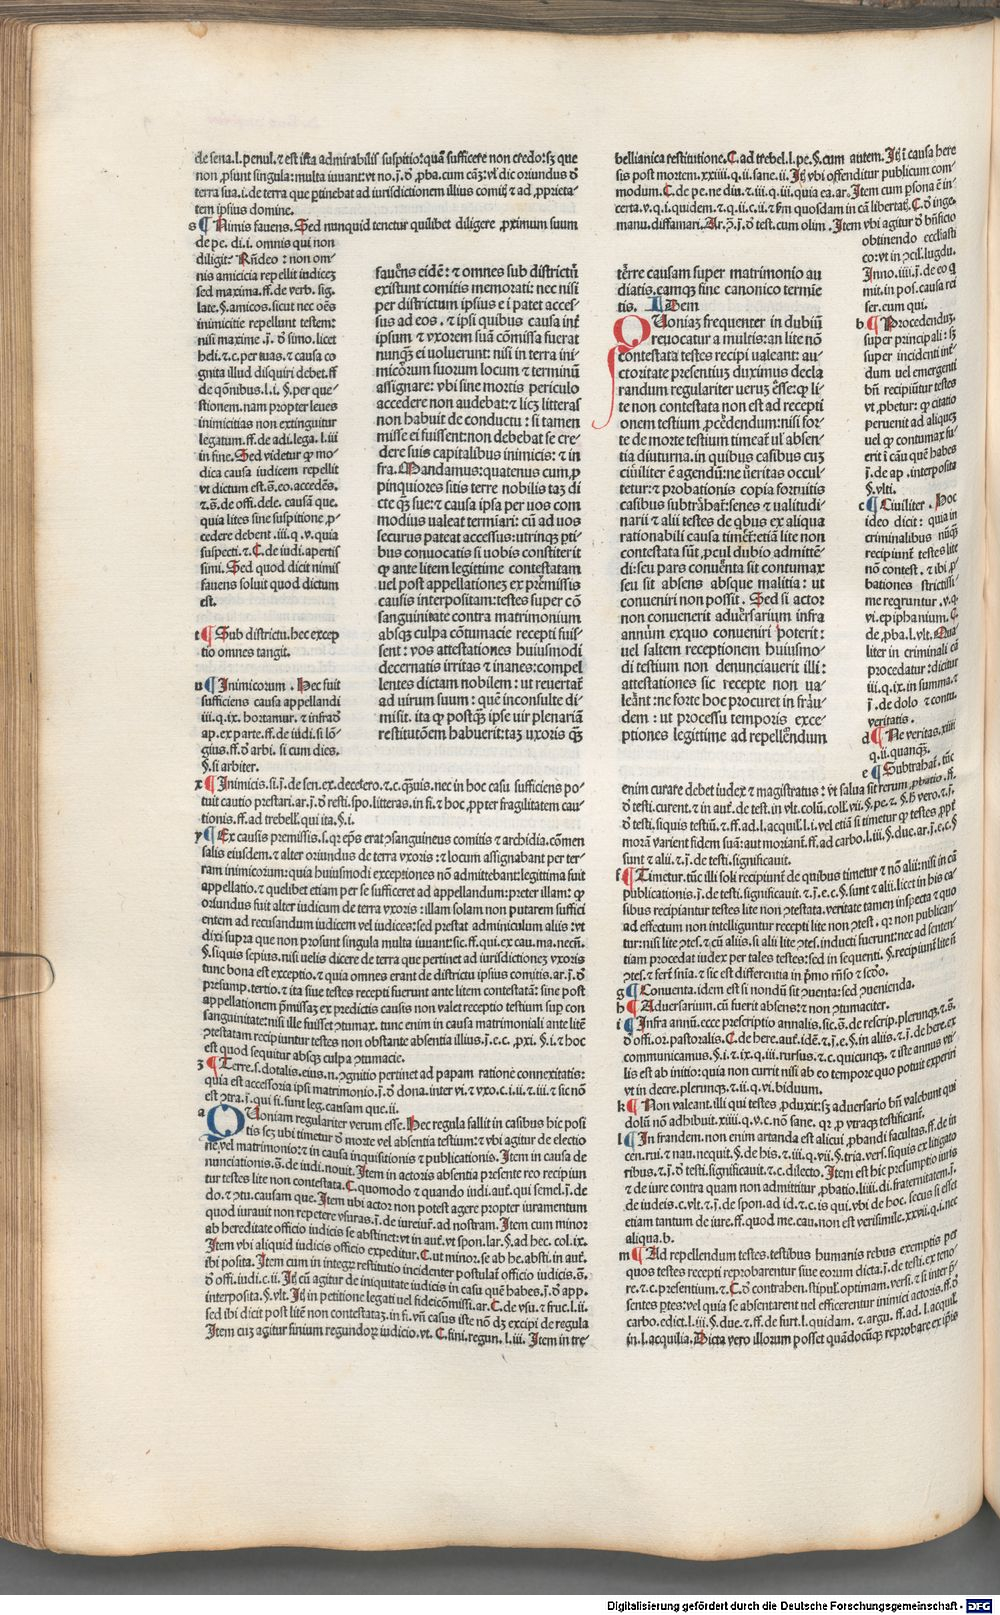 de sena.l.penul.⁊ est ista admirabilis suspitio:quã sufficere non credo:sꝫ que
non ꝓsunt singula:multa iuvant:vt no.j̄.ð ꝓba.cum cãꝫ:vl̃ dic oriundus ð
terra sua.i.de terra que ꝑtinebat ad iurisdictionem illius comit; ⁊ ad ꝓprieta-
tem ipsius domine.
s ¶ Nimis fauens. Sed nunquid tenetur quilibet diligere ꝓximum suum
de pe. di.i. omnis qui non
diligit: Rñdeo : non om-
nis amicicia repellit iudiceꝫ
sed maxima.ff.de verb. sig.
late.§.amicos.sicut nec oẽs
inimicitie repellunt testem:
nisi maxime .j̄. ð simo.licet
heli.⁊ c. per tuas. ⁊ causa co
gnita illud disquiri debet.ff
de q̃onibus.l.i. §.per que-
stionem.nam propter leues
inimicitias non extinguitur
legatum.ff.de adi.lega. l.iii
in fine. Sed videtur ꝙ mo-
dica causa iudicem repellit
vt dictum est.s̄.eo.accedẽs.
⁊.s̄.de offi.dele. causã que.
quia lites sine suspitione ꝓ-
cedere debent .iii.q.v.quia
suspecti.⁊.C.de iudi.apertis
simi. Sed quod dicit nimis
fauens soluit quod dictum
est.
t ¶ Sub districtu.hec excep
tio omnes tangit.
u ¶ Inimicorum . Hec fuit
sufficiens causa appellandi
iii.q.ix. hortamur. ⁊ infra ð
ap.ex parte.ff.de iudi.si lõ-
gius.ff.ð arbi. si cum dies.
§.si arbiter.
x ¶ Inimicis.si.j̄.de sen.ex.decetero.⁊.c.q̃uis.nec in hoc casu sufficiens po-
tuit cautio prestari.ar.j̄.ð resti.spo.litteras.in fi.⁊ hoc ꝓpter fragilitatem cau-
tionis.ff.ad trebell.qui ita.§.i.
y ¶ Ex causis premissis.s.qꝛ ep̃s erat ɔsanguineus comitis ⁊ archidia.cõmen
salis eiusdem.⁊ alter oriundus de terra vxoris : ⁊ locum assignabant per ter-
ram inimicorum:quia huiusmodi exceptiones nõ admittebant:legitima fuit
appellatio.⁊ quelibet etiam per se sufficeret ad appellandum:preter illam: ꝙ
oriundus fuit alter iudicum de terra vxoris : illam solam non putarem suffici
entem ad recusandum iudicem vel iudices:sed prestat adminiculum aliis : vt
dixi supra que non prosunt singula multa iuuant:sic.ff.qui.ex cau.ma.necñ.
§.siquis sepius.nisi uelis dicere de terra que pertinet ad iurisdictioneꝫ vxoris
tunc bona est exceptio.⁊ quia omnes erant de districtu ipsius comitis.ar.j̄.ð
presump.tertio.⁊ ita siue testes recepti fuerunt ante litem contestatã: sine post
appellationem ꝓ̃missaꝫ ex predictis causis non valet receptio testium suꝑ con
sanguinitate:nisi ille fuisset ɔtumax. tunc enim in causa matrimoniali ante litẽ
ɔtestatam recipiuntur testes non obstante absentia illius.j̄.e.c. ꝓxi. §.i.⁊ hoc
est quod sequitur absqꝫ culpa ɔtumacie.
z ¶ Terre.s.dotalis.eius.n.ɔgnitio pertinet ad papam ratione connexitatis:
quia est accessoria ipsi matrimonio.j̄.ð dona.inter vi.⁊ vxo.c.i.ii.⁊.iii.⁊ sic nõ
est ɔtra.j̄.qui fi.sunt leg.causam que.ii.
a QUoniam regulariter verum esse.Hec regula fallit in casibus hic posi
tis scꝫ ubi timetur ð morte vel absentia testium:⁊ vbi agitur de electio
ne.vel matrimonio:⁊ in causa inquisitionis ⁊ publicationis.Item in causa de
nunciationis.s̄.de iudi.nouit.Item in actoris absentia presente reo recipiun
tur testes lite non contestata.C.quomodo ⁊ quando iudi.aut̃.qui semel.j̄.de
do.⁊ ɔtu.causam que.Item ubi actor non potest agere propter iuramentum
quod iurauit non repetere vsuras.j̄.de iureiur̃.ad nostram.Item cum minor
ab hereditate officio iudicis se abstinet:vt in aut̃.vt spon.lar.§.ad hec.col.ix.
Item vbi aliquid iudicis officio expeditur.C.ut minor.se ab he.absti.in aut̃.
ibi posita.Item cum in integꝝ restitutio incidenter postulat̃ officio iudicis.s̄.
ð offi.iudi.c.ii.Itꝫ cũ agitur de iniquitate iudicis in casu quẽ habes.j̄.ð app.
interposita.§.vlt.Itꝫ in petitione legati uel fideicõmissi.ar.C.de vsu.⁊ fruc.l.ii.
sed ibi dicit post litẽ non contestataꝫ.in fi.vñ casus iste nõ dꝫ excipi de regula
Item cuꝫ agitur finium regundoꝝ iudicio.vt.C.fini.regun.l.iii.Item in tre-
fauẽns eidẽ: ⁊ omnes sub districtũ
existunt comitis memorati: nec nisi
per districtum ipsius e i patet acces-
sus ad eos . ⁊ ipsi quibus causa int̃
ipsum ⁊ vxorem suã cõmissa fuerat
nunqꝫ ei uoluerunt: nisi in terra ini-
micõrum suorum locum ⁊ terminũ
assignare: vbi sine mortis periculo
accedere non audebat:⁊ licꝫ litteras
non habuit de conductu : si tamen
misse ei fuissent:non debebat se cre-
dere suis capitalibus inimicis: ⁊ in
fra. Mandamus:quatenus cum ꝓ
pinquiores sitis terre nobilis taꝫ di
cte q̃ꝫ sue:⁊ causa ipsa per uos com
modius ualeat termiari: cũ ad uos
securus pateat accessus:utrinqꝫ ꝑti-
bus conuocatis si uobis constiterit
ꝙ ante litem legitime contestatam
uel post appellationeꝫ ex prẽmissis
causis interpositam:testes super cõ
sanguinitate contra matrimonium
absqꝫ culpa cõtumacie recepti fuis-
sent : vos attestationes huiusmodi
decernatis irritas ⁊ inanes:compel
lentes dictam nobilem : ut reuertat̃
ad uirum suum : quẽ inconsulte di-
misit. ita ꝙ postqꝫ ipse uir plenariã
restitutõem habuerit:taꝫ uxoris q̃ꝫ
bellianica restitutione.C.ad trebel.l.pe.§.cum autem.Itꝫ ĩ causa here
sis post mortem.xxiiii.q.ii.sane.ii.Itꝫ vbi offenditur publicum com-
modum.C.de pe.ne diu.⁊.iii.q.iii.quia ea.ar.Item cum ꝑsona ẽ in-
certa.v.q.i.quidem.⁊.q.ii.c.ii.⁊ fm̃ quosdam in cã libertat;.C.ð inge.
manu.diffamari.Ar.ɔ̃.j̄.ð test.cum olim.Item vbi agitur ð bñficio
obtinendo ecclẽasti
co:vt in ɔcil.lugdu.
Inno.iiii.j̄.de eo q̃
mit.in pos.causa rei
ser.cum qui.
b ¶ Procedenduꝫ.
super principali : sꝫ
super incidenti int̃-
dum uel emergenti
bñ recipiũtur testes
vt ꝓbetur: ꝙ citatio
peruenit ad aliqueꝫ
uel ꝙ contumax fu-
erit ĩ cãu quẽ habes
j̄.de ap .interposita
§.vlti.
c ¶ Ciuiliter . Hoc
ideo dicit: quia in
criminalibus nũqꝫ
recipiunt̃ testes lite
nõ contest. ⁊ ibi ꝓ-
bationes strictissi-
me reqruntur.v.q.
vi.epiphanium. C.
de ꝓba.l.vlt.Qua-
liter in criminali cã
procedatur:dicitur
iii.q.ix.in summa.⁊
j̄.de dolo ⁊ contu.
veritatis.
d ¶ Ne veritas.xiiii
q.ii.quanqꝫ.
e ¶ Subtrahat̃.tũc
tẽrre causam super matrimonio au
diatis.eamqꝫ sine canonico termĩe
tis. IDem
QUoniaꝫ frequenter in dubiũ
reuocatur a multis:an lite nõ
contestata testes recipi ualeant: au-
ctoritate presentiuꝫ duximus decla
randum regulariter ueruꝫ ẽsse:ꝙ li-
te non contestata non est ad recepti
onem testium ꝓcẽdendum:nisi for-
te de morte testium timeat̃ ul̃ absen-
tia diuturna.in quibus casibus cuꝫ
ciuiliter ẽ agendũ:ne ũeritas occul-
tetur:⁊ probationis copia fortuitis
casibus subtrãhat̃:senes ⁊ ualitudi-
narii ⁊ alii testes de qbus ex aliqua
rationabili causa timet̃:etiã lite non
contestata sũt ꝓcul dubio admittẽ-
di:seu pars conuẽnta sit contumax
seu sit absens absque malitia : ut
conueniri non possit . Sed si actor
non conuenerit aduẽrsarium infra
annum exquo conueniri poterit:
uel saltem receptionem huiusmo-
di testium non denunciauerit illi:
attestationes sic recepte non ua-
leãnt:ne forte hoc procuret in frãu-
dem : ut processu temporis exce-
ptiones legitime ad repellẽndum
enim curare debet iudex ⁊ magistratus: vt salua sit rerum ꝓbatio.ff.
ð testi.curent.⁊ in aut̃.de test.in vlt.colũ.coll.vii.§.pe.⁊.§.h̃ vero.⁊.j̄.
ð testi.siquis testiũ.⁊.ff.ad.l.acquil.l.i.vel etiã si timetur ꝙ testes ꝓpt̃
morã varient fidem suã:aut moriant̃.ff.ad carbo.l.iii.§.due.ar.j̄.e.c.§
sunt ⁊ alii.⁊.j̄.de testi.significauit.
f ¶ Timetur.tũc illi soli recipiunt̃ de quibus timetur ⁊ nõ alii:nisi in cã
publicationis.j̄.de testi.significauit.⁊.j̄.e.c.§.sunt ⁊ alii.licet in his ca-
sibus recipiantur testes lite non ɔtestata.veritate tamen inspecta ⁊ quo
ad effectum non intelliguntur recepti lite non ɔtest. qꝛ non publican-
tur:nisi lite ɔtes.⁊ cũ aliis.si alii lite ɔtes.inducti fuerunt:nec ad senten-
tiam procedat iudex per tales testes:sed in sequenti. §.recipiunt̃ lite ñ
ɔtes.⁊ fert̃ snĩa.⁊ sic est differentia in pꝛmo rñso ⁊ scðo.
g ¶ Conuenta.idem est si nondũ sit ɔuenta:sed ɔuenienda.
h ¶ Aduersarium.cũ fuerit absens:⁊ non ɔtumaciter.
i ¶ Infra annũ.ecce prescriptio annalis.sic.s̄.de rescrip.plerunqꝫ.⁊.s̄.
ð offi.or.pastoralis.C.de here.aut̃.idẽ.⁊.j̄.e.§.in aliis.⁊.j̄.de here.ex
communicamus.§.i.⁊ ix.q.iii.rursus.⁊.c.quicunqꝫ.⁊ iste annus vti-
lis est ab initio:quia non currit nisi ab eo tempore quo potuit experiri
vt in decre.plerunqꝫ.⁊.ii.q.vi.biduum.
k ¶ Non valeant.illi qui testes ꝓduxit:sꝫ aduersario bñ valebunt qui
dolũ nõ adhibuit.xiiii.q.v.c.nõ sane. qꝛ ꝓ vtraqꝫ testificant̃.
l ¶ In frandem.non enim artanda est alicui ꝓbandi facultas.ff.de in
cen.rui.⁊ nau.nequit.§.de his.⁊.iii.q.vii.§.tria.vers.siquis ex litigato
ribus.⁊.j̄.ð testi.significauit.⁊.c.dilecto.Item est hic presumptio iuris
⁊ de iure contra quam non admittitur ꝓbatio.liiii.di.fraternitatem.j̄.
de iudeis.c.vlt.⁊.j̄.de spon.ad id.⁊.c.is qui.vbi de hoc.secus si esset
etiam tantum de iure.ff.quod me.cau.non est verisimile.xxvii.q.i.nec
aliqua.b.
m ¶ Ad repellendum testes.testibus humanis rebus exemptis per
quos testes recepti reprobarentur siue eorum dicta.j̄.de testi.ex teno-
re.⁊.c.presentium.⁊.C.ð contrahen.stipul̃.optimam.versi.⁊ si inter p̃-
sentes ptes:vel quia se absentarent uel efficerentur inimici actoris.ff.ð
carbo.edict.l.iii.§.due.⁊.ff.de furt.l.quidam.⁊.argu.ff.ad.l.acquil̃.
in.l.acquilia.Dicta vero illorum posset quãdocũqꝫ reprobare ex ip̃is
Digitalisierung gefördert durch die Deutsche Forschungsgemeinschaft - DFG